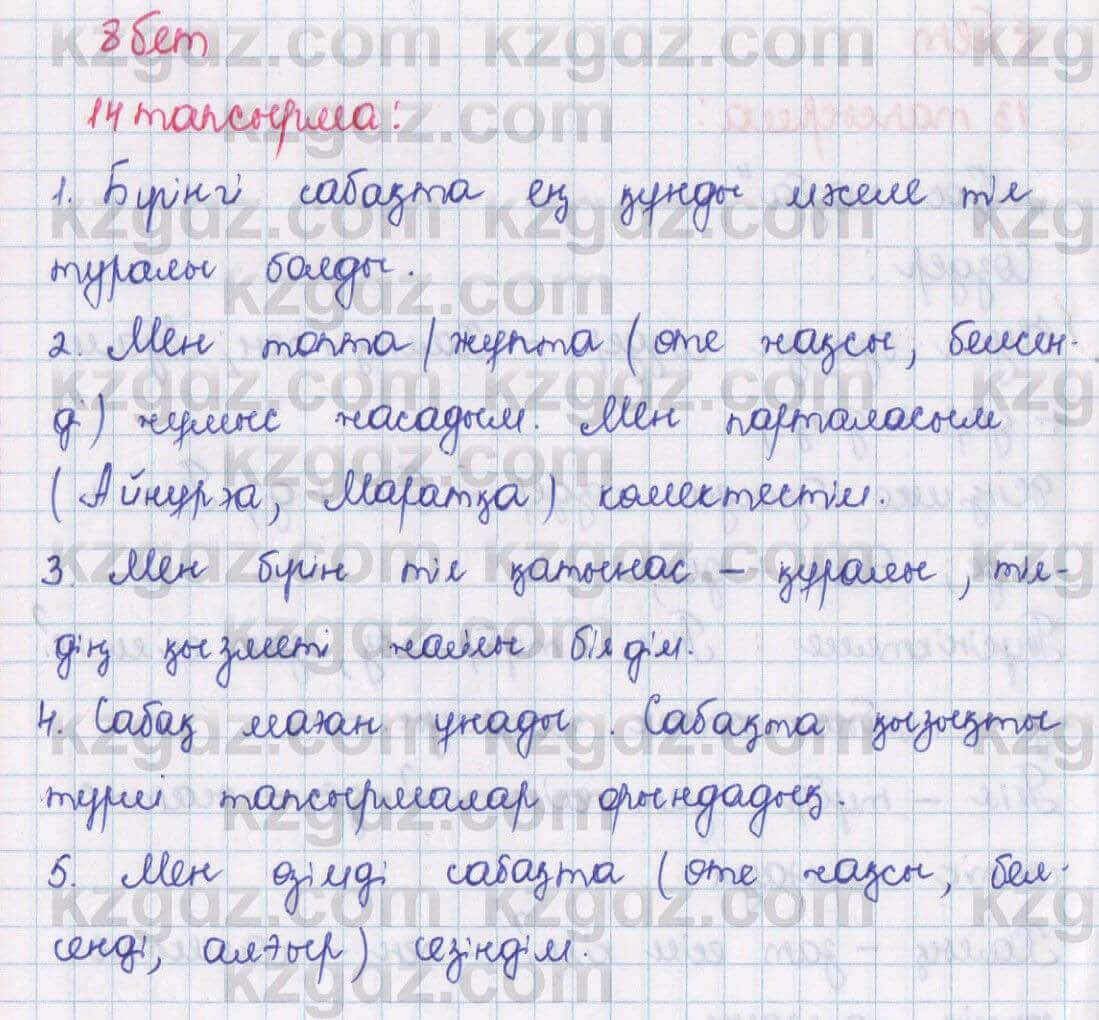 8 бет
14 тапсырма:
1. Бүгінгі сабақта ең құнды мәселе тіл
туралы болды.
2. Мен топта / жұпта (өте жақсы, белсен-
ді) жұмыс жасадым. Мен парталасым
(Айнұрға, Маратқа) көмектестім.
3. Мен бүгін тіл қатынас – құралы, тіл-
дің қызметі жайлы білдім.
4. Сабақ маған ұнады. Сабақта қызықты
түрлі тапсырмалар орындадық.
5. Мен өзімді сабақта (өте жақсы, бел-
сенді, алғыр) сезіндім.
kzgdz.com